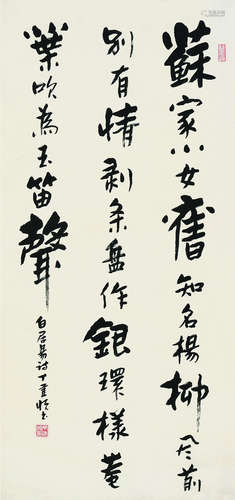 蘇家小女舊知名楊柳风前
別有情剥条盤作銀環樣卷
葉吹為玉笛聲
白居易诗